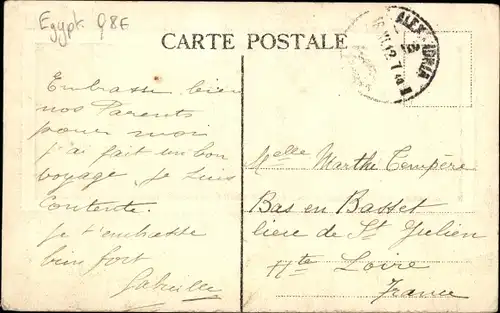 Egypt 98E
CARTE POSTALE
ALEX
Embrasse bien
nos Parents
pour moi
j'ai fait un bon
voyage Je suis
Contente.
Je t'embrasse
bien fort
Melle Marthe Tempère
Bas en Basset
lieu de St Julien
Hte Loire
France